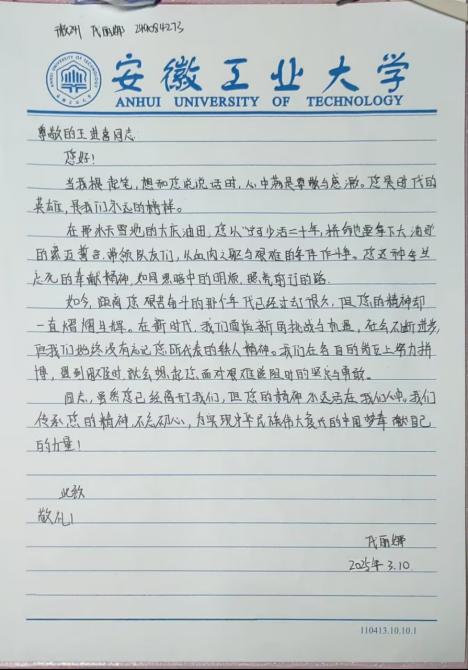 微训 代丽娜 249084273
安徽工业大学
ANHUI UNIVERSITY OF TECHNOLOGY
尊敬的王进喜同志
您好!
当我提起笔,想和您说说话时,心中满是尊敬与感激。您是时代的
英雄,是我们不远的榜样。
在那冰天雪地的大庆油田,您以"宁可少活二十年,拼命也要拿下大油田"
的豪迈誓言,带领队友们,以血肉之躯与艰难的条件作斗争。您这种舍生
忘死的奉献精神,如同黑暗中的明灯,照亮前行的路.
如今,距离您艰苦奋斗的那个年代已经过去了很久,但您的精神却
一直熠熠生辉。在新时代,我们面临新的挑战与机遇,社会不断进步,
但我们始终没有忘记您所代表的铁人精神。我们在各自的岗位上努力拼
搏,遇到困难时就会想起您面对艰难险阻时的坚定与勇敢。
同志,虽然您已经离开了我们,但您的精神永远活在我们心中。我们
传承您的精神,不忘初心,为实现中华民族伟大复兴的中国梦奉献自己
的力量!
此致
敬礼!
代丽娜
2025年 3.10.
110413.10.10.1